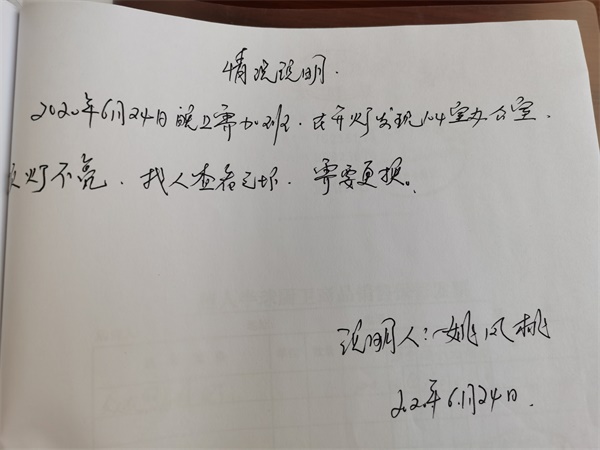 情况说明.
2020年6月24日晚上需加班.在开灯发现104室办公室.
灯不亮.找人查看已坏.需要更换。
说明人:姚凤桃
2020年6月24日.